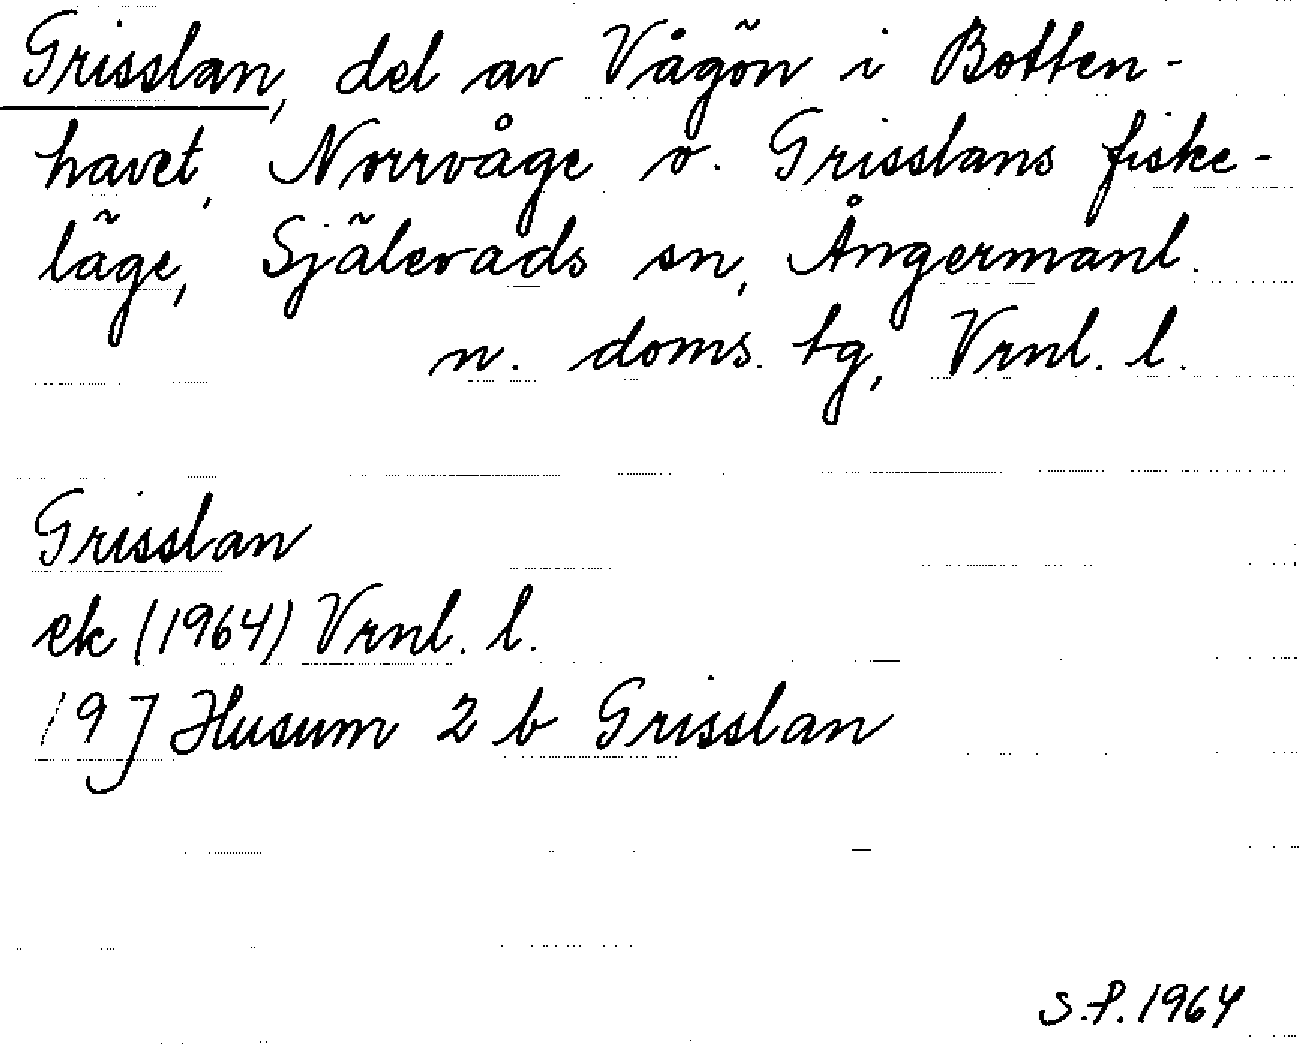 Grisslan, del av Vågön i Botten-
havet, Norrvåge o. Grisslans fiske-
läge, Själevads sn, Ångermanl.
n. doms. tg, Vrnl. l.
Grisslan
ek (1964) Vrnl. l.
19J Husum 2 b Grisslan
S.P. 1964